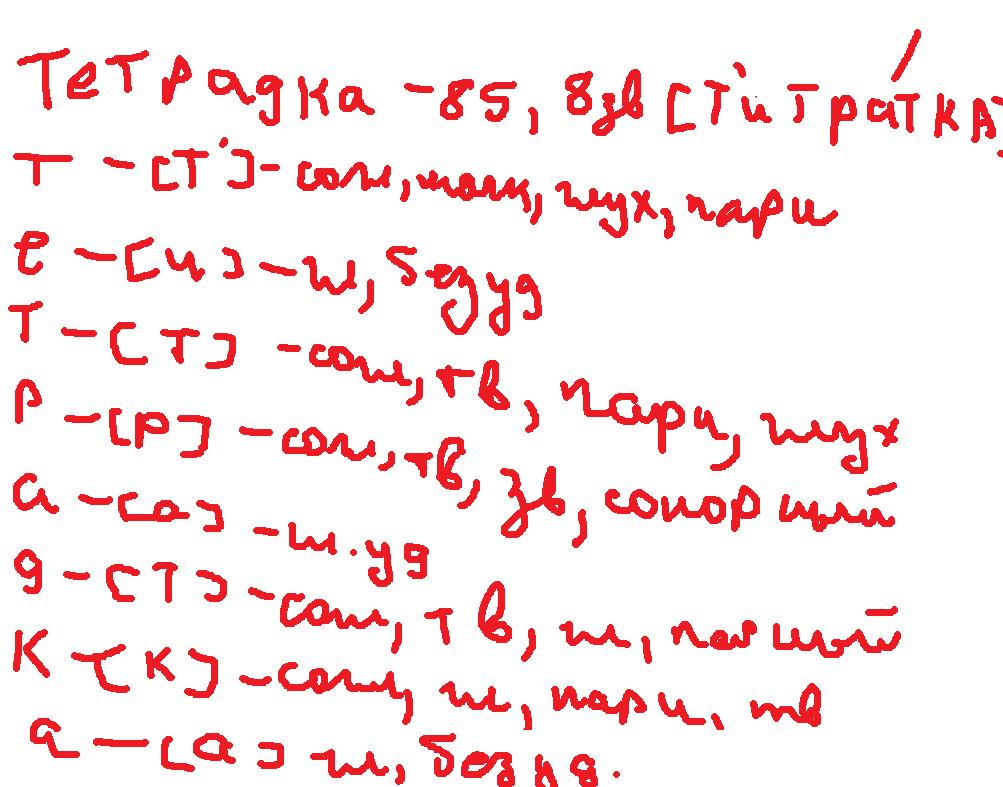 Тетрадка - 8Б, 8зв [Т'иТра́ТКА]
Т - [Т'] - согл, мягк, глух, парн
е - [и] - гл, безуд
Т - [Т] - согл, тв, парн, глух
Р - [р] - согл, тв, зв, сонорный
а - [а] - гл. уд
д - [Т] - согл, тв, гл, парный
К - [К] - согл, гл, парн, тв
а - [а] гл, безуд.